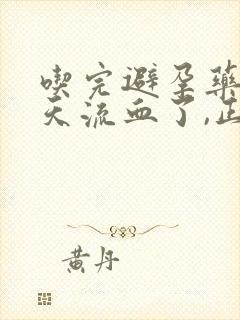 喫完避孕藥
天流血了,正
黃丹